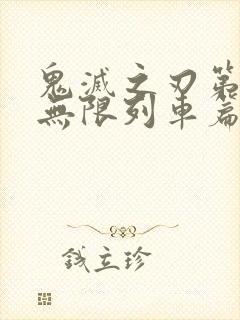 鬼滅之刃第
無限列車篇
錢立珍